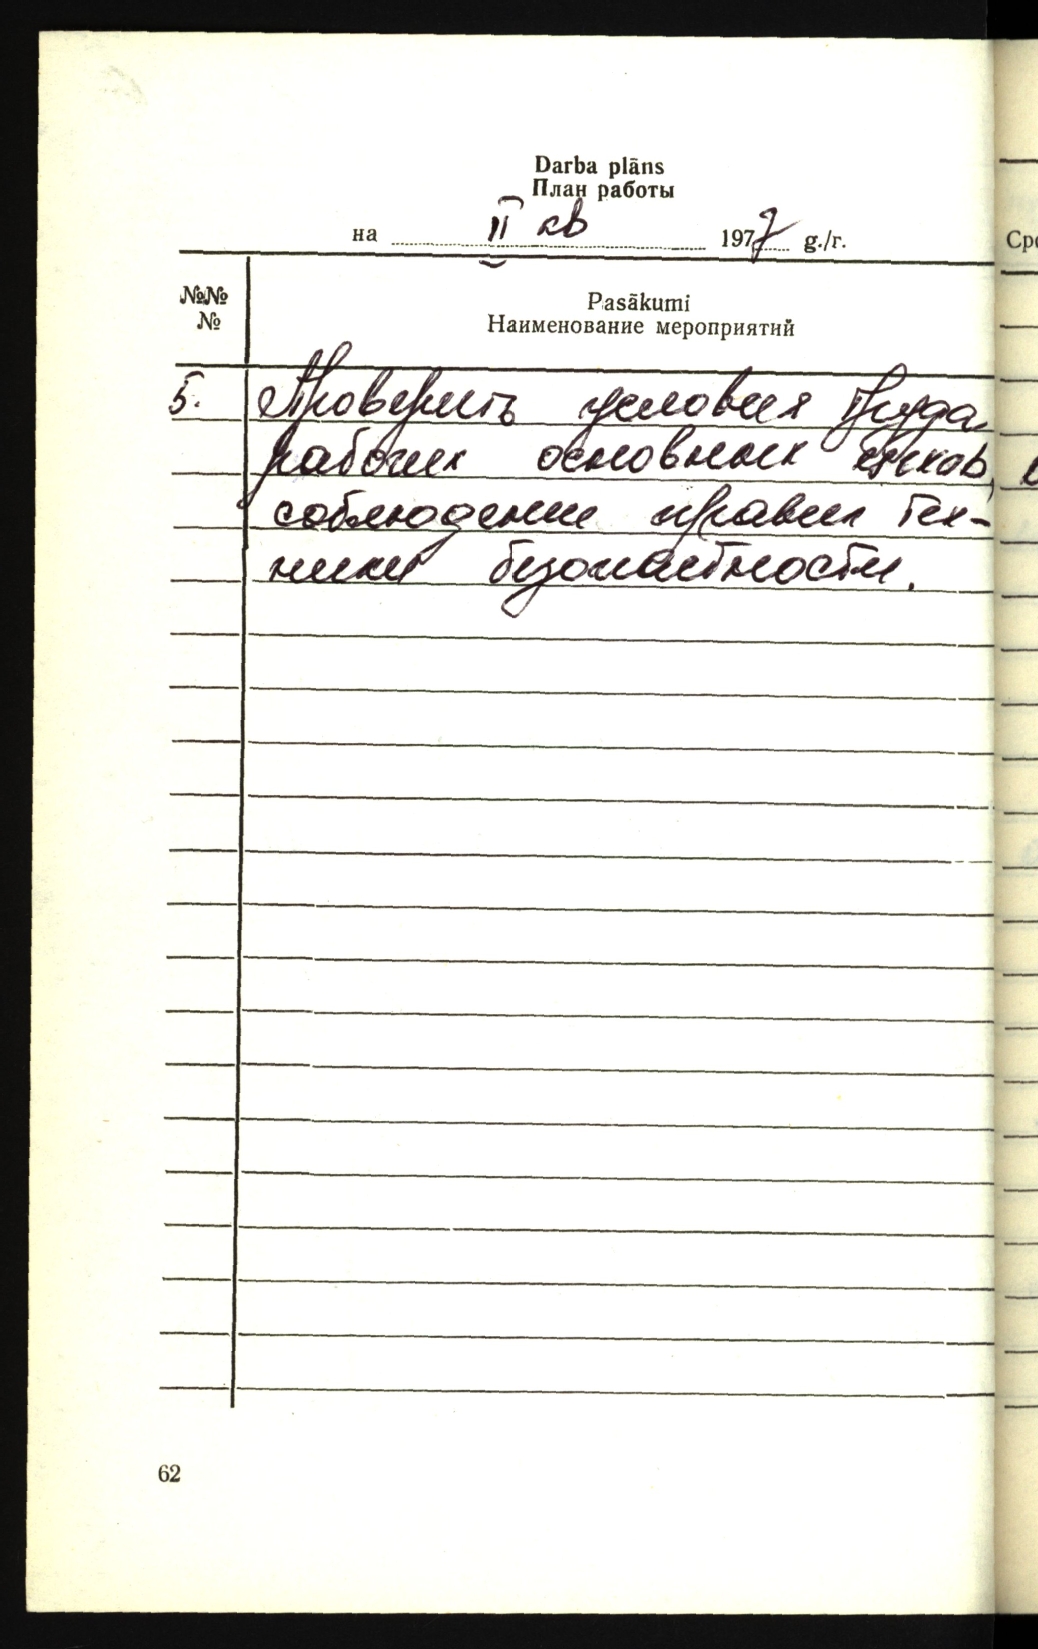 Darba plāns
План работы
на II кв 1977 g./г.
№№
№
Pasākumi
Наименование мероприятий
5. Проверить условия труда
рабочих основных цехов,
соблюдение правил тех-
ники безопасности.
62
Сро